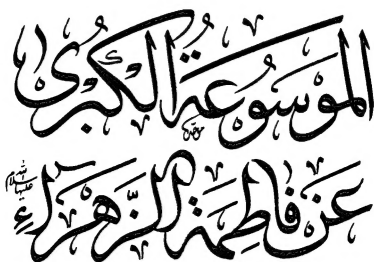 الموسوعة الكبرى
عن فاطمة الزهراء
عليها السلام